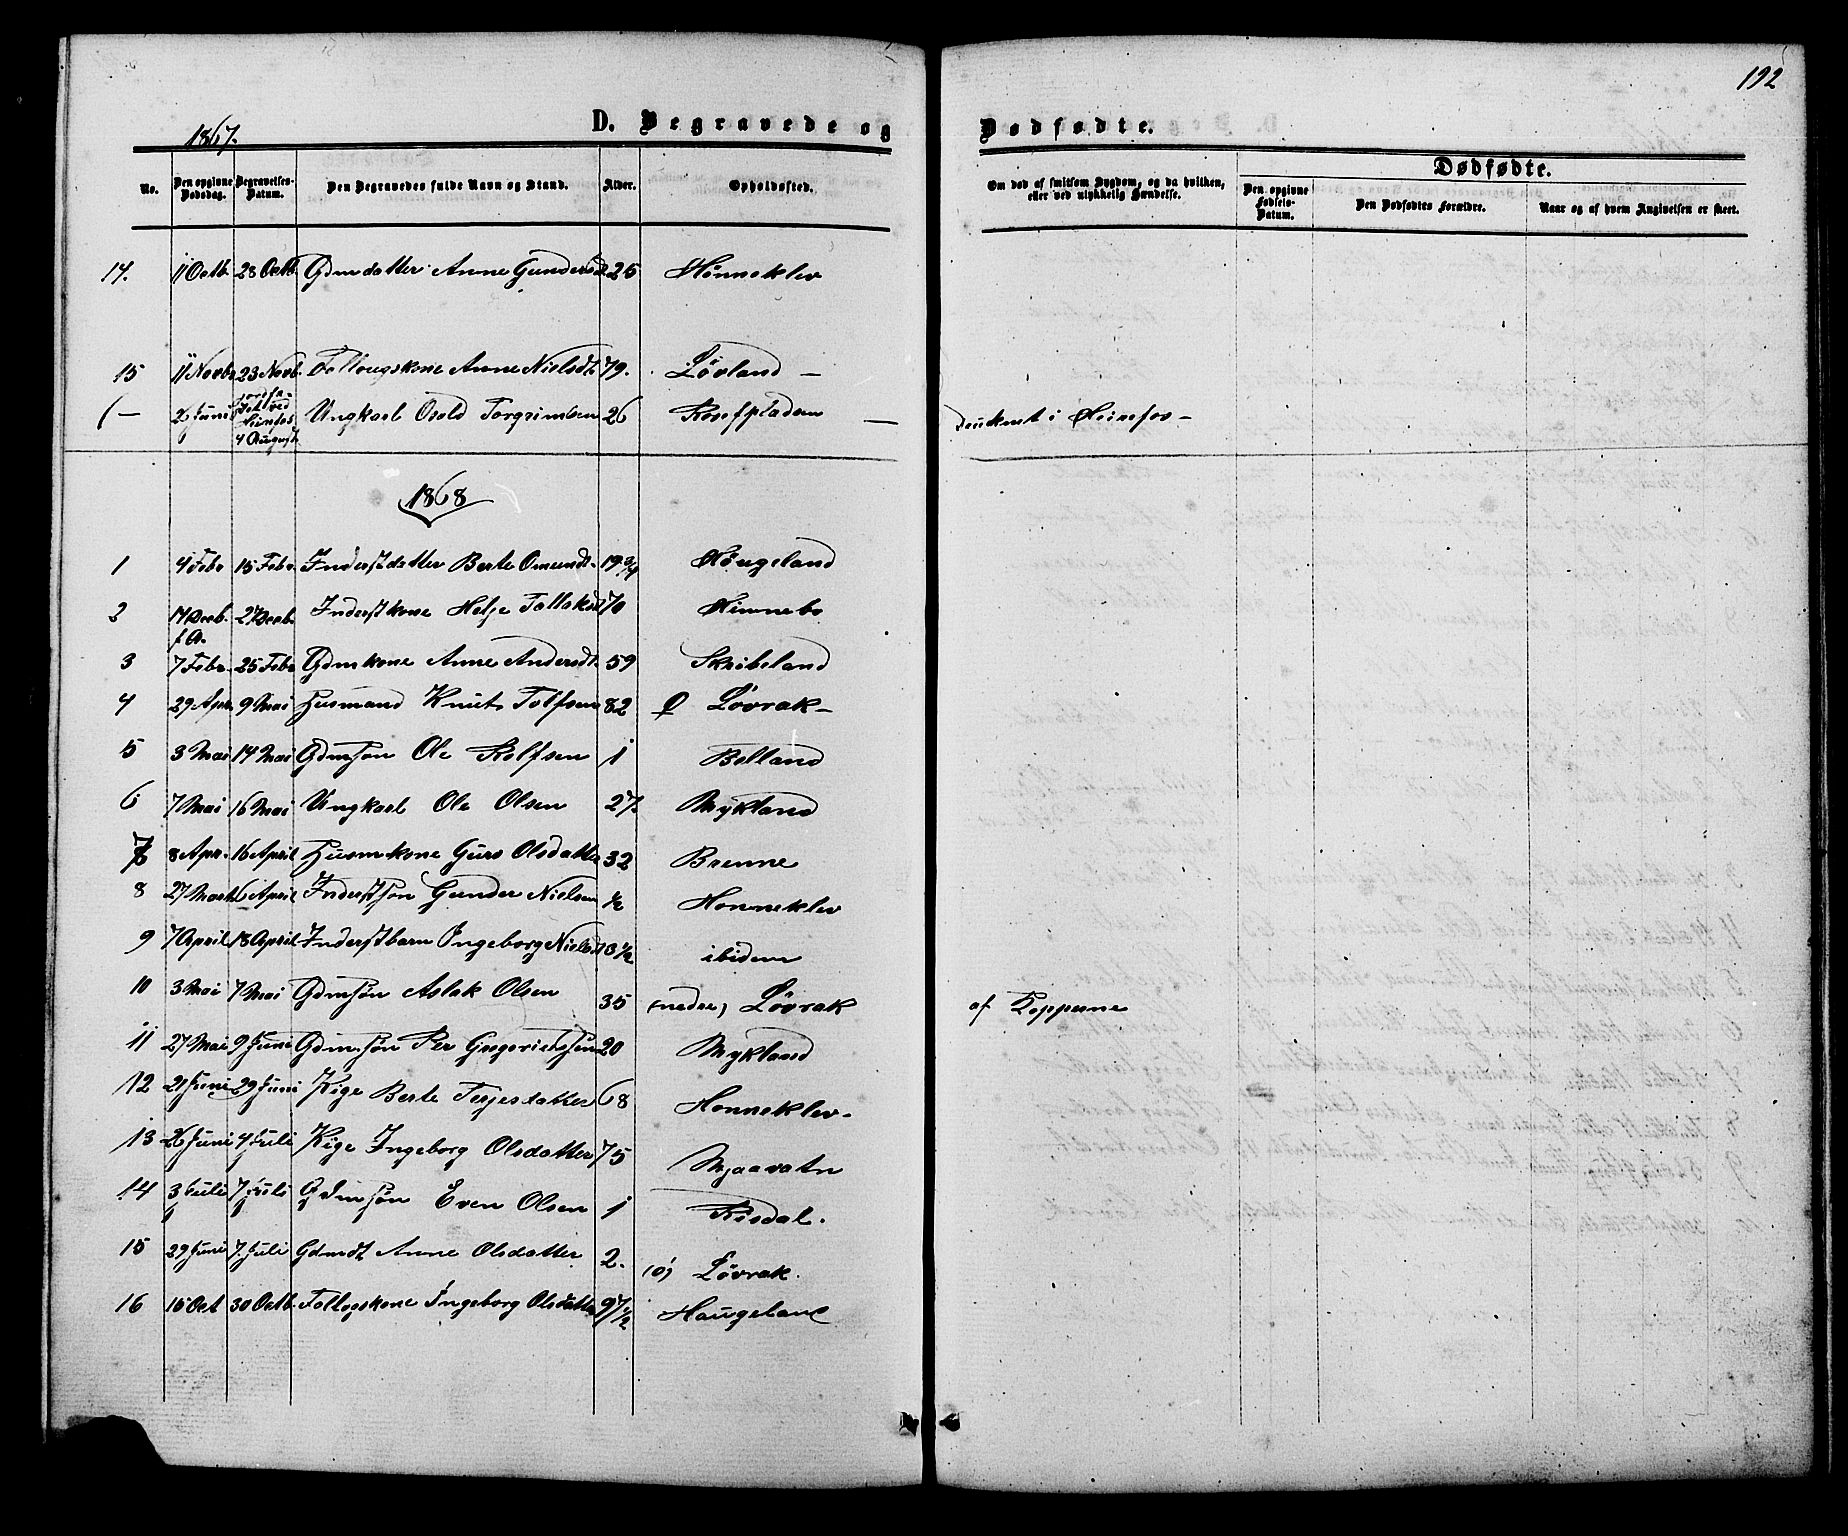 192
1867.
D. Begravede og Dødfødte.
Dødfødte.
No.
Den opgivne Dødsdag.
Begravelses-Datum.
Den Begravedes fulde Navn og Stand.
Alder.
Opholdssted.
Om død af smitsom Sygdom, og da hvilken, eller ved ulykkelig Hændelse.
Den opgivne Fødsels-Datum.
Den Dødfødtes Forældre.
Naar og af hvem Angivelsen er skeet.
14. 11 Octb. 28 Octb. Gdmdatter Anne Gundersd 25 Hønneklev
15 11 Novbr 23 Novb. Follougskone Anne Nielsdt 79. Løvland –
– 26 Juni 4 August Ungkarl Osold Torgrimsen 26 – druknet i Heirefos –
1868
1 4 Febr 15 Febr. Inderstdatter Berte Omundt. 19 3/4 Høugeland
2 17 Decb. f. A. 27 Decb. Inderstkone Helje Tollaksd 70 Himnebo
3 7 Febr. 25 Febr Gdmkone Anne Andersdt. 59 Skribeland
4 29 Apr. 9 Mai Husmand Knut Tolfsen 82 Ø Løvrak –
5 3 Mai 14 Mai Gdmsøn Ole Rolfsen 1 Belland
6 7 Mai 16 Mai Ungkarl Ole Olsen 27. Mykland
7 8 Apr. 16 April Husmkone Guro Olsdatter 32 Brenne
8 27 Marts 6 April Inderstsøn Gunder Nielsen 1/2 Honneklev
9 7 April 18 April Inderstbarn Ingeborg Nielsdt 3 1/2 ibidem
10 3 Mai 7 Mai Gdmsøn Aslak Olsen 35 (nedre) Løvrak af Kopperne
11 27 Mai 9 Juni Gdmsøn Per Gregoriussøn 20 Mykland
12 21 Juni 29 Juni Pige Berte Terjesdatter 68 Honneklev –
13 26 Juni 4 Juli Pige Ingeborg Olsdatter 75 Mjaavatn
14 3 Juli 7 Juli Gdmsøn Even Olsen 1 Risdal.
15 29 Juni 7. Juli Gdmdt Anne Olsdatter 2. (ø) Løvrak.
16 15 Oct 30 Octb. Follogskone Ingeborg Olsdatter 97 1/2 Haugeland